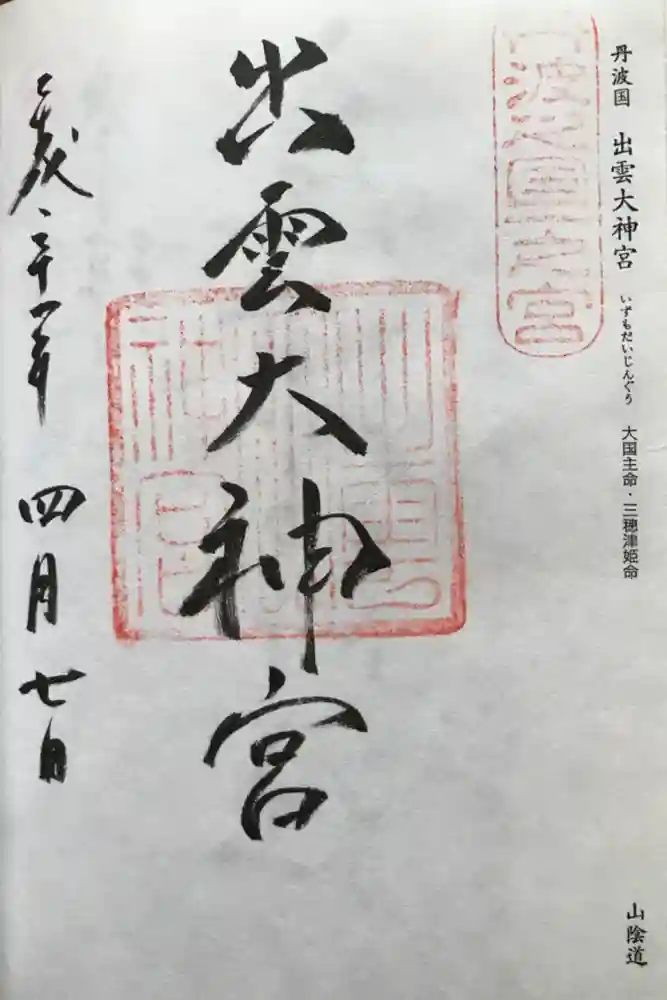 丹波国 出雲大神宮 いずもだいじんぐう 大国主命・三穂津姫命
山陰道
丹波之国一之宮
出雲大神宮
己亥、三十一年 四月七日